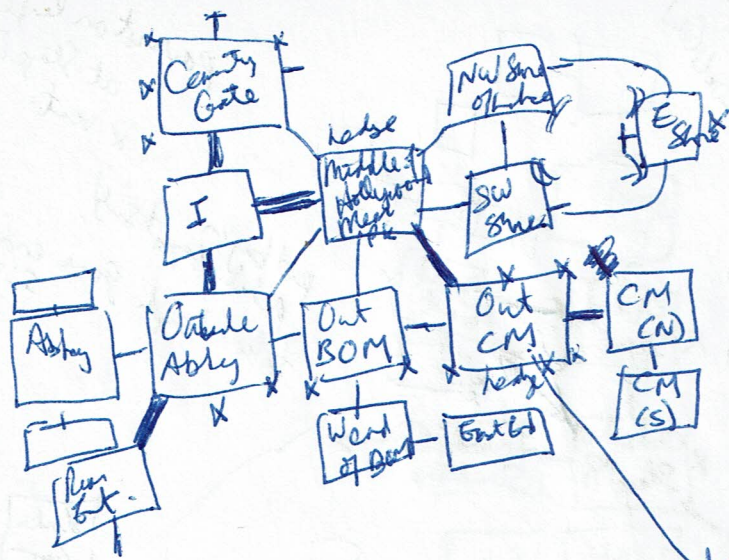 Cemetery
Gate
NW Shore
of Lake
E
Shore
Ledge
Middle of
Hollywood
Mem
Pk
SW
Shore
I
Abbey
Outside
Abbey
Out
BOM
Out
CM
Ledge
CM
(N)
CM
(S)
W end
of Bom
East End
Rear
Ent.